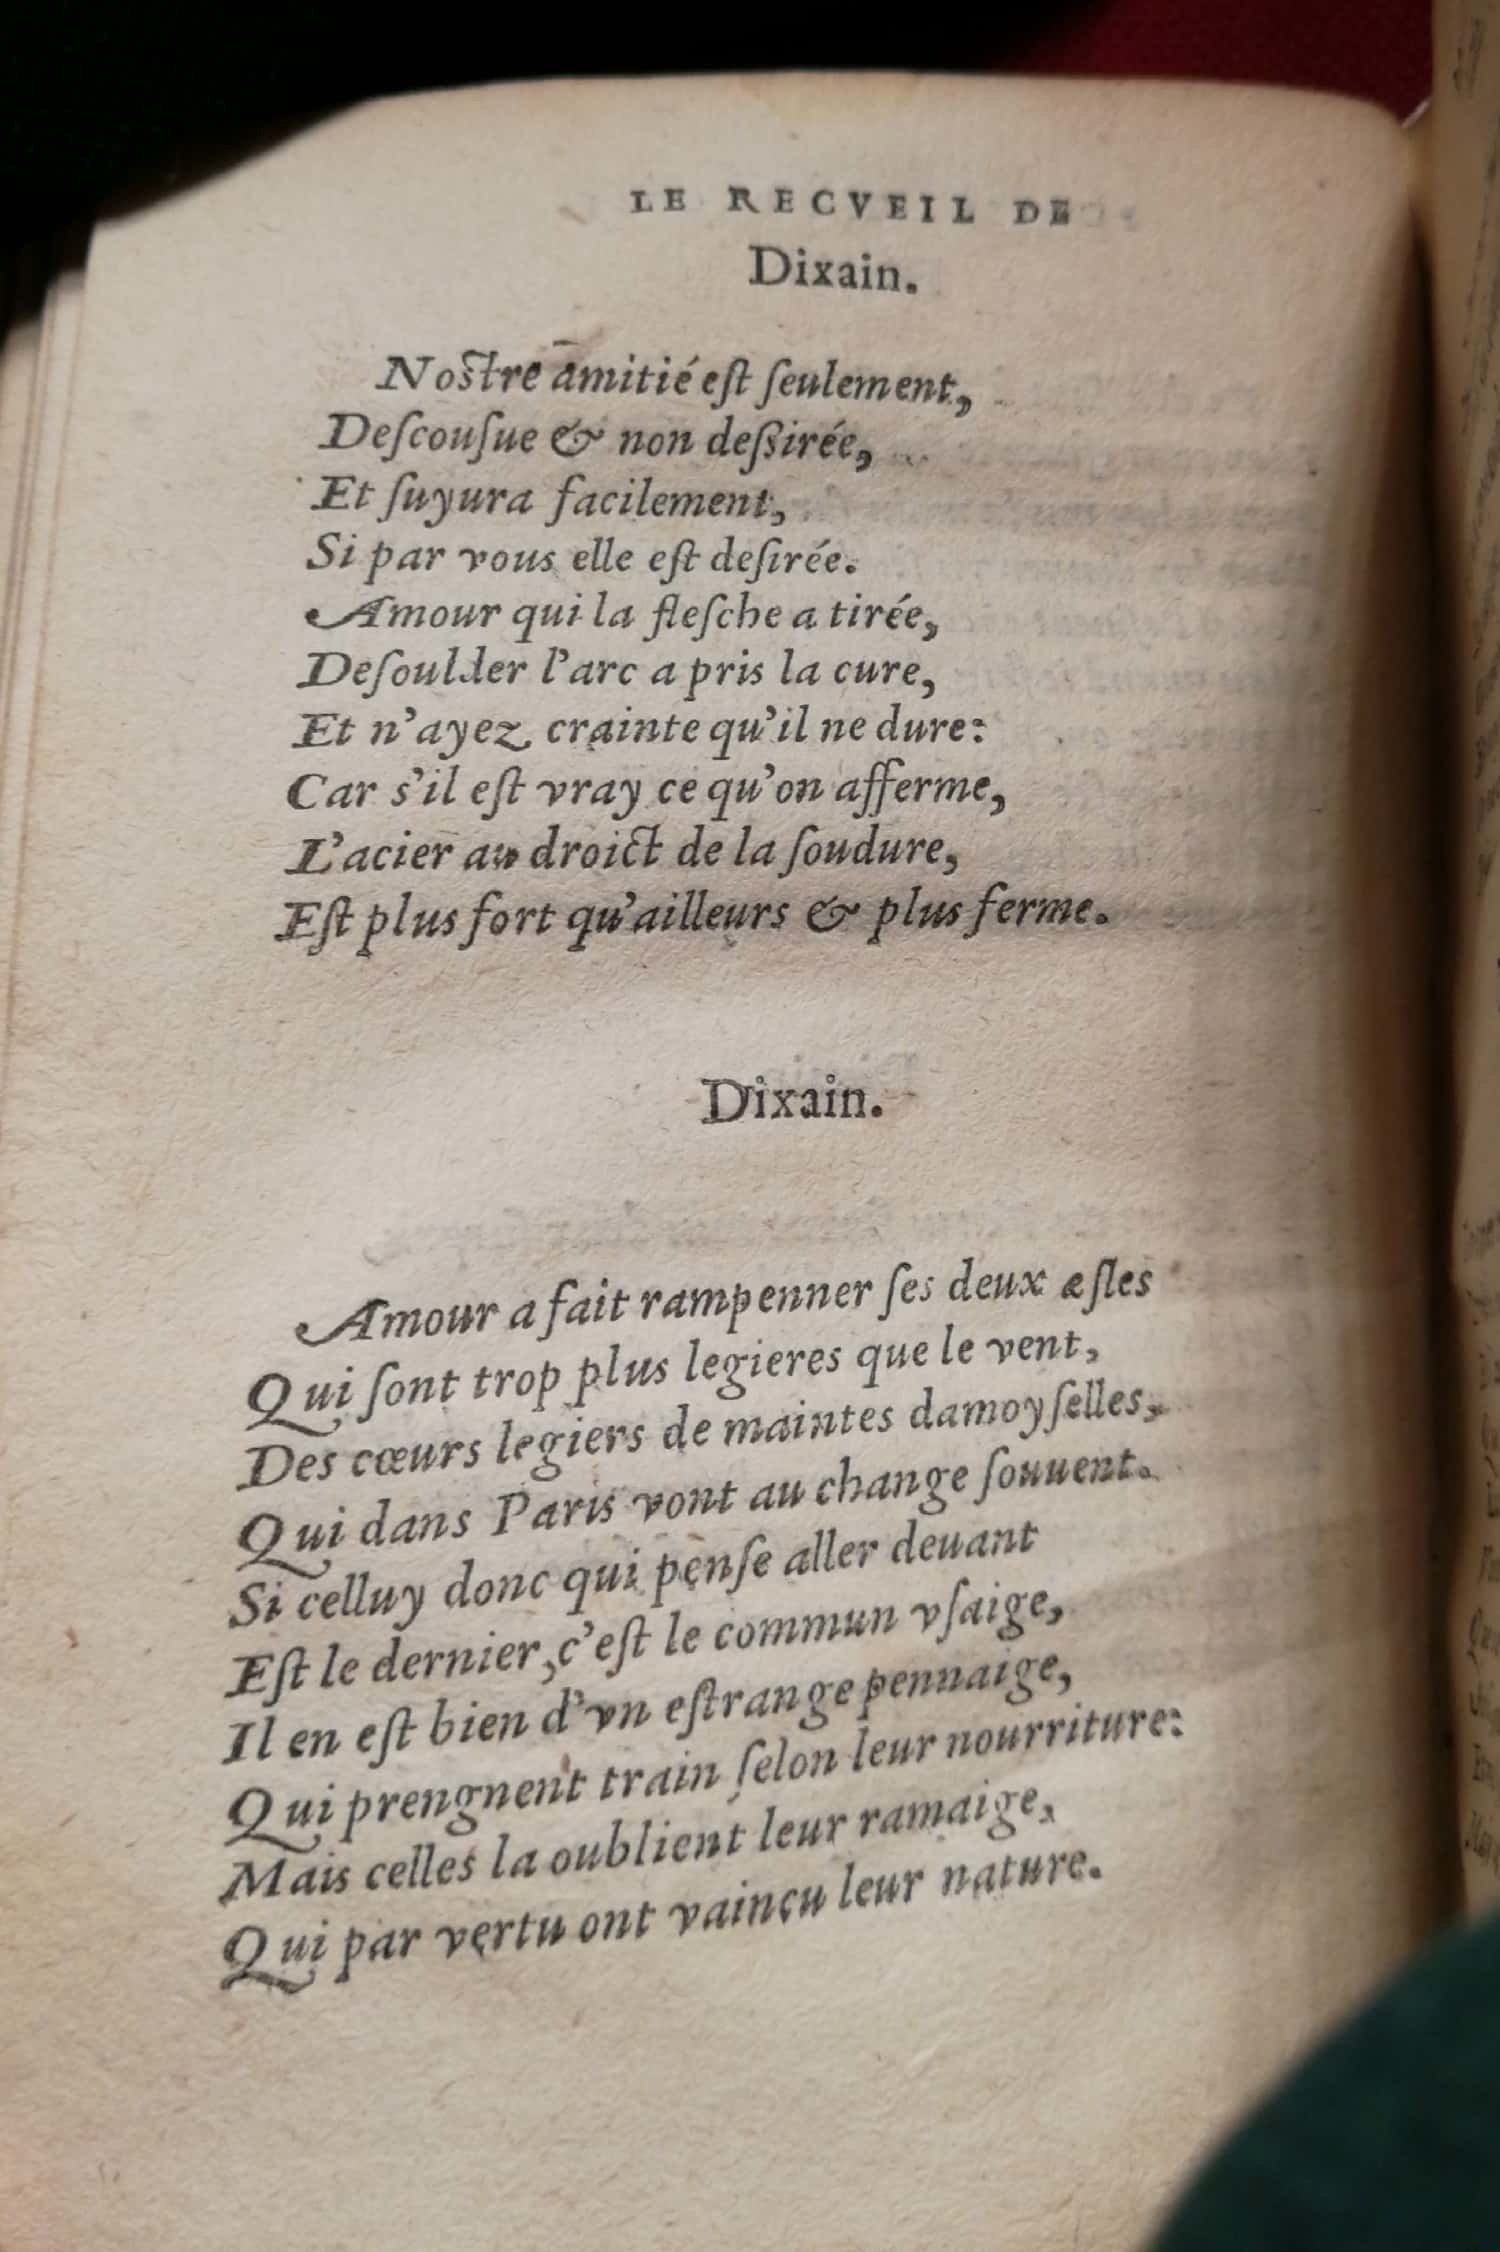 LE RECVEIL DE
Dixain.
Noſtre amitié eſt ſeulement,
Deſcouſue & non deßirée,
Et ſuyura facilement,
Si par vous elle eſt deſirée.
Amour qui la fleſche a tirée,
Deſoulder l'arc a pris la cure,
Et n'ayez crainte qu'il ne dure:
Car s'il eſt vray ce qu'on afferme,
L'acier au droict de la ſoudure,
Eſt plus fort qu'ailleurs & plus ferme.
Dixain.
Amour a fait rampenner ſes deux æſles
Qui ſont trop plus legieres que le vent,
Des cœurs legiers de maintes damoyſelles,
Qui dans Paris vont au change ſouuent.
Si celluy donc qui penſe aller deuant
Eſt le dernier, c'eſt le commun vſaige,
Il en eſt bien d'vn eſtrange pennaige,
Qui prengnent train ſelon leur nourriture:
Mais celles la oublient leur ramaige,
Qui par vertu ont vaincu leur nature.